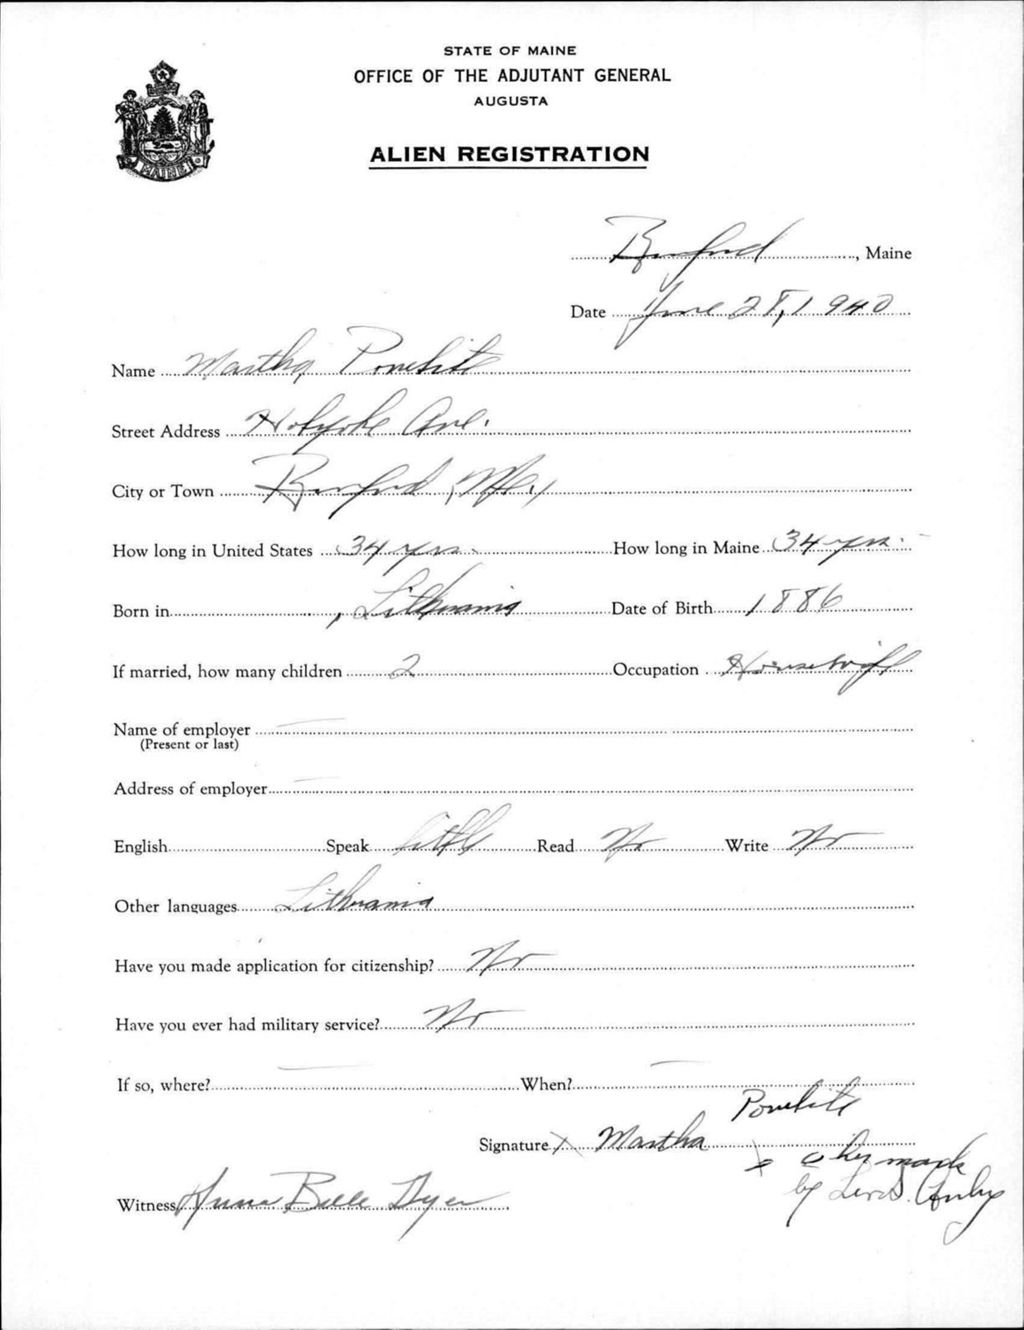 STATE OF MAINE
OFFICE OF THE ADJUTANT GENERAL
AUGUSTA
ALIEN REGISTRATION
MAINE
Rumford, Maine
Date June 28, 1940
Name Martha
Street Address Holyoke Ave.
City or Town Rumford, Me.,
How long in United States 34 yrs. How long in Maine 34 yrs.
Born in , Lithuania Date of Birth 1886
If married, how many children 2 Occupation Housewife
Name of employer
(Present or last)
Address of employer
English Speak little Read No Write No
Other languages Lithuania
Have you made application for citizenship? No
Have you ever had military service? No
If so, where? When?
Signature X Martha
X her mark
by
Witness Anna Belle Dyer